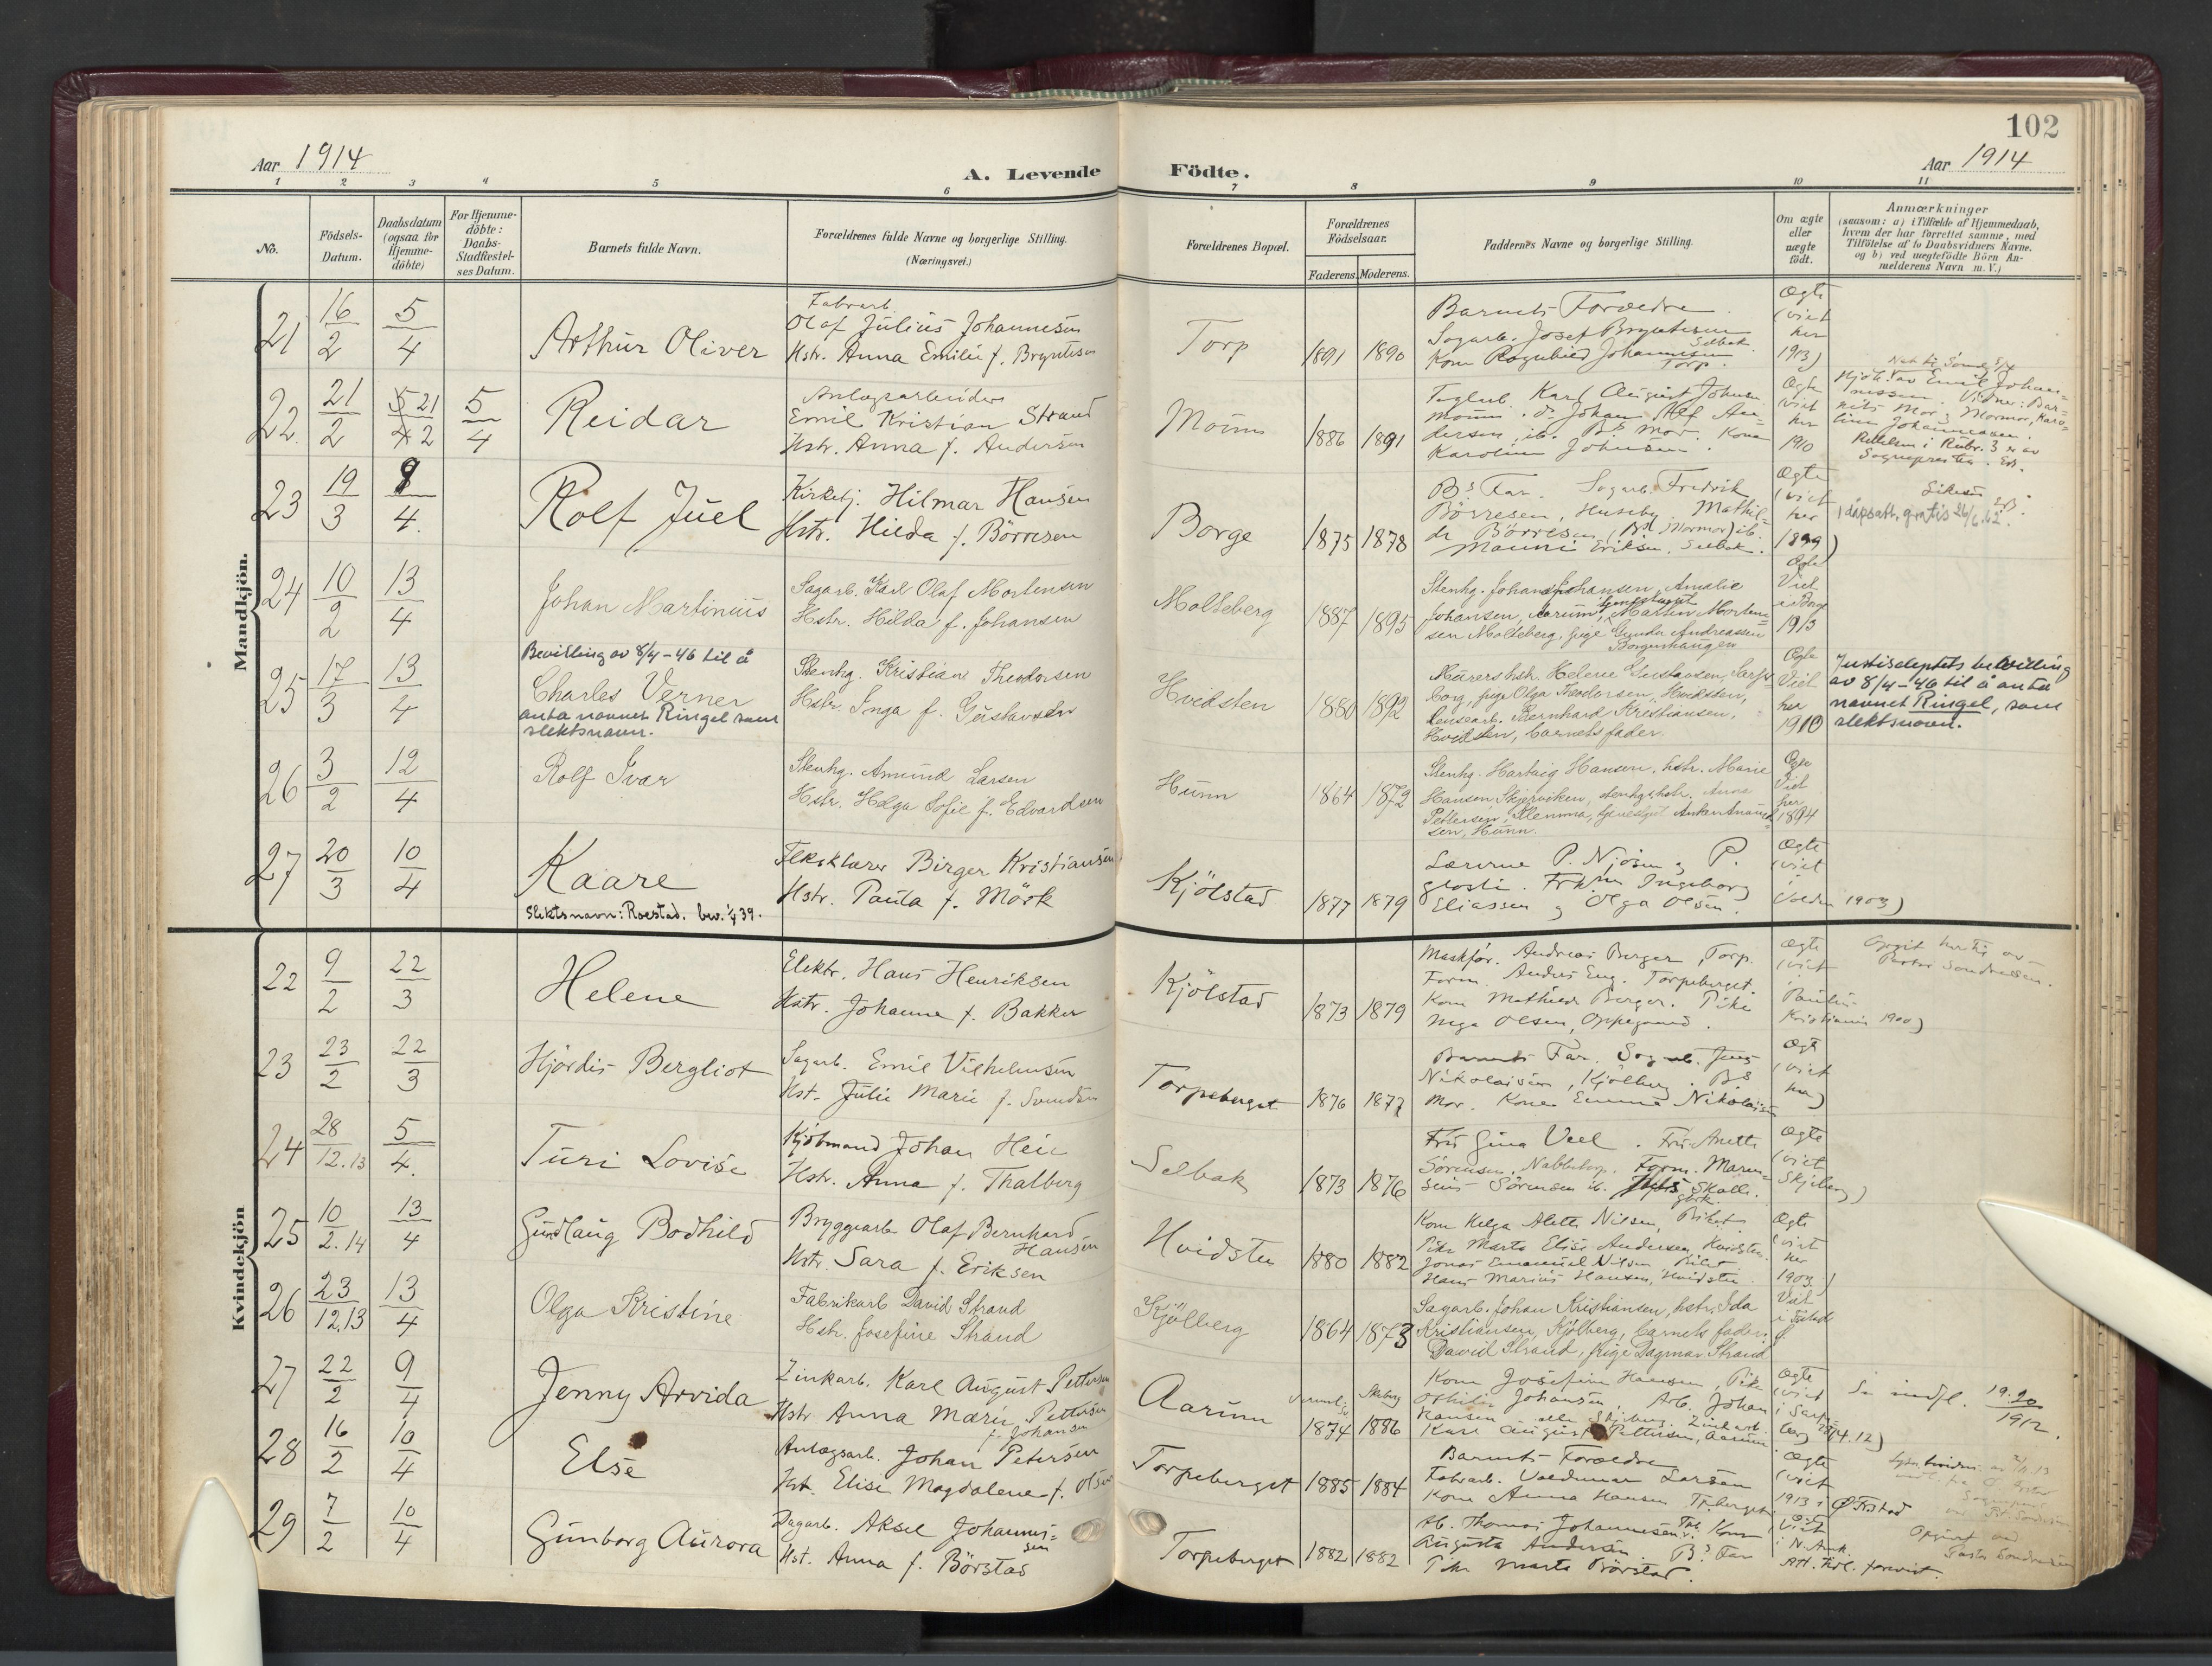 102
Aar 1914
A. Levende Födte.
Aar 1914
1 2 3 4 5 6 7 8 9 10 11
No.
Födsels-
Datum.
Daabsdatum
(ogsaa for
Hjemme-
döbte)
For Hjemme-
döbte:
Daabs-
Stadfæstel-
ses Datum.
Barnets fulde Navn.
Forældrenes fulde Navne og borgerlige Stilling.
(Næringsvei.)
Forældrenes Bopæl.
Forældrenes
Födselsaar.
Faderens. Moderens.
Faddernes Navne og borgerlige Stilling.
Om ægte
eller
uægte
født.
Anmærkninger
(saasom: a) i Tilfælde af Hjemmedaab,
hvem der har forrettet samme, med
Tilföielse af to Daabsvidners Navne,
og b) ved uægtefödte Börn An-
melderens Navn m. V.)
Mandkjön.
21 16/2 5/4 Arthur Oliver
Fabrarb.
Olaf Julius Johannesen
Hstr. Anna Emilie f. Bryntesen
Torp 1891 1890
Barnets Forældre.
Sagarb. Josef Bryntesen
Selbak.
Kone Ragnhild Johannesen
Torp.
Ægte
(viet
her
1913)
22. 21/2 21/2 5/4 Reidar
Anlægsarbeider
Emil Kristian Strand
Hstr. Anna f. Andersen
Moum 1886 1891
Karl August Johnsen
Moum. Johan Alf An-
dersen, ib. Bs Mor. Kone
Karoline Johnsen.
Ægte
(viet
her
1910
Hjdbt. av Emil Johan-
nessen. Vidner: Bar-
nets Mor og Mormor, Karo-
line Johannessen.
Rettelsen i Rubr. 3 er av
Sognepresten. EB.
23 19/3 9/4. Rolf Juel
Kirketj. Hilmar Hansen
Hstr. Hilda f. Börresen
Borge 1875 1878
Bs Far. Sagarb. Fredrik
Börresen, Huseby. Mathil-
de Börresen (Bs Mormor) ib.
Manni Eriksen, Selbak.
Ægte
(viet
her
1899)
dåpsatt. gratis 26/6.62.
24 10/2 13/4 Johan Martinius
Sagarb. Karl Olaf Mortensen
Hstr. Hilda f. Johansen
Molteberg 1887 1895
Stenhg. Johan Johansen, Amalie
Johansen, Aarum, Martin Morten-
sen Molteberg, pige Gunda Andreassen
Borgenhaugen
Ægte
Viet
i Borge
1913
Bevilling av 8/4-46 til å
25 17/3 13/4 Charles Verner
anta navnet Ringel som
slektsnavn.
Stenhg. Kristian Theodorsen
Hstr. Inga f. Gustavsen
Hvidsten 1880 1892
Murers hstr. Helene Gustavsen, Sarps-
borg, pige Olga Teodorsen, Hvidsten,
Lensearb. Bernhard Kristiansen,
Hvidsten, barnets fader.
Ægte
Viet
her
1910
Justisdeptets bevilling
av 8/4-46 til å anta
navnet Ringel, som
slektsnavn.
26 3/2 12/4 Rolf Ivar
Stenhg. Amund Larsen
Hstr. Helga Sofie f. Edvardsen
Hunn 1864 1872
Stenhg. Hartvig Hansen, hstr. Marie
Hansen, Skjærviken, stenhgs. hstr. Anna
Pettersen, Klemma, tjenestgut Anton Amund-
sen, Hunn.
Ægte
Viet
her
1894
27 20/3 10/4 Kaare
Slektsnavn: Roestad. bev. 1/4 39.
Birger Kristiansen
Hstr. Paula f. Mörk
Kjölstad 1877 1879
Lærerne P. Njösen og P.
Ingeborg
Eliassen og Olga Olsen.
Ægte
(viet
i Volden 1903)
Kvindekjön
22 9/2 22/3 Helene
Elektr. Hans Henriksen
Hstr. Johanne f. Bakken
Kjölstad 1873 1879
Maskfør. Andreas Berger, Torp.
Form. Anders Eng. Torpeberget.
Kone Mathilde Berger. Pike
Inga Olsen, Oppegaard.
Ægte
(viet
i Paulus-
Kristiania 1900)
Opgit hertil av
Pastor Sondresen.
23 23/2 22/3 Hjördis Bergliot
Sagarb. Emil Vilhelmsen
Hst. Julie Marie f. Svendsen
Torpeberget 1876 1877
Barnets Far. Sagarb. Jens
Nikolaisen, Kjölberg. Bs
Mor. Kone Emma Nikolaisen
Ægte
(viet
her)
24 28/12.13 5/4. Turi Lovise
Kjöbmand Johan Heie
Hstr. Anna f. Thalberg
Selbak 1873 1876
Fru Gina Veel. Fru Anette
Sörensen, Nabbetorp. Form. Maren-
sius Sörensen ib.
Ægte
(viet
Skjeberg)
25 10/2.14 13/4 Gundlaug Bodhild
Bryggearb Olaf Bernhard
Hansen
Hstr. Sara f. Eriksen
Hvidsten 1880 1882
Kone Helga Alette Nilsen,
Pike Marta Elise Andersen, Hvidsten.
Jonas Emanuel Nilsen
Hans Marius Hansen, Hvidsten.
Ægte
(viet
her
1903)
26 23/12.13 13/4 Olga Kristine
Fabrikarb David Strand
Hstr. Josefine Strand
Kjölberg 1864 1873
Sagarb. Johan Kristiansen, hstr. Ida
Kristiansen, Kjölberg, barnets fader
David Strand, pige Dagmar Strand
Viet
i Fstad
27 22/2 9/4 Jenny Arvida
Zinkarb. Karl August Pettersen
Hstr Anna Marie Pettersen
f. Johansen
Aarum 1874 1886
Kone Josefine Hansen, Pike
Othilie Johansen, Arb. Johan
Hansen alle Skjeberg. Zinkarb.
Karl August Pettersen, Aarum.
Ægte
(viet
i Sarps-
borg 28/4.12)
Se indfl. 19.20/1912.
28 16/2 10/4 Else
Anlægsarb. Johan Petersen
Hst. Elise Magdalene f. Olsen
Torpeberget 1885 1884
Barnets Forældre
Fabrarb. Valdemar Larsen
Kone Anna Hansen Tpberget
Ægte
(viet
1913 i Ø Frstad
29 7/2 10/4 Gunborg Aurora
Dagarb. Aksel Johannes-
sen
Hst. Anna f. Börstad
Torpeberget 1882 1882
Arb. Thomas Johannesen. Kone
Augusta Andersen. Bs Far
Pike Marta Börstad.
Viet
i N. Amk.
Att. forevist.
Opgivet av
Pastor Sondresen